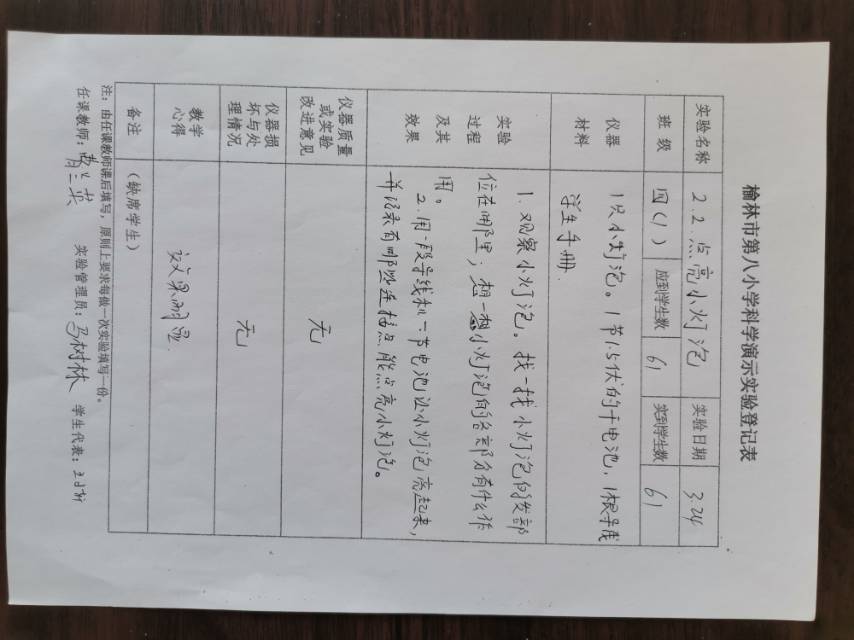 榆林市第八小学科学演示实验登记表
实验名称 2.2.点亮小灯泡 实验日期 3.24
班级 四(1) 应到学生数 61 实到学生数 61
仪器
材料
1只小灯泡。1节1.5伏的干电池、1根导线
学生手册.
实验
过程
及其
效果
1.观察小灯泡。找一找小灯泡的发部
位在哪里;想一想小灯泡的各部分有什么作
用。
2.用一段导线和一节电池让小灯泡亮起来,
并记录有哪些连接点能点亮小灯泡。
仪器质量
或实验
改进意见
无
仪器损
坏与处
理情况
无
教学
心得
效果明显
备注 (缺席学生)
注:由任课教师课后填写,原则上要求每做一次实验填写一份。
任课教师: 实验管理员:马树林 学生代表: